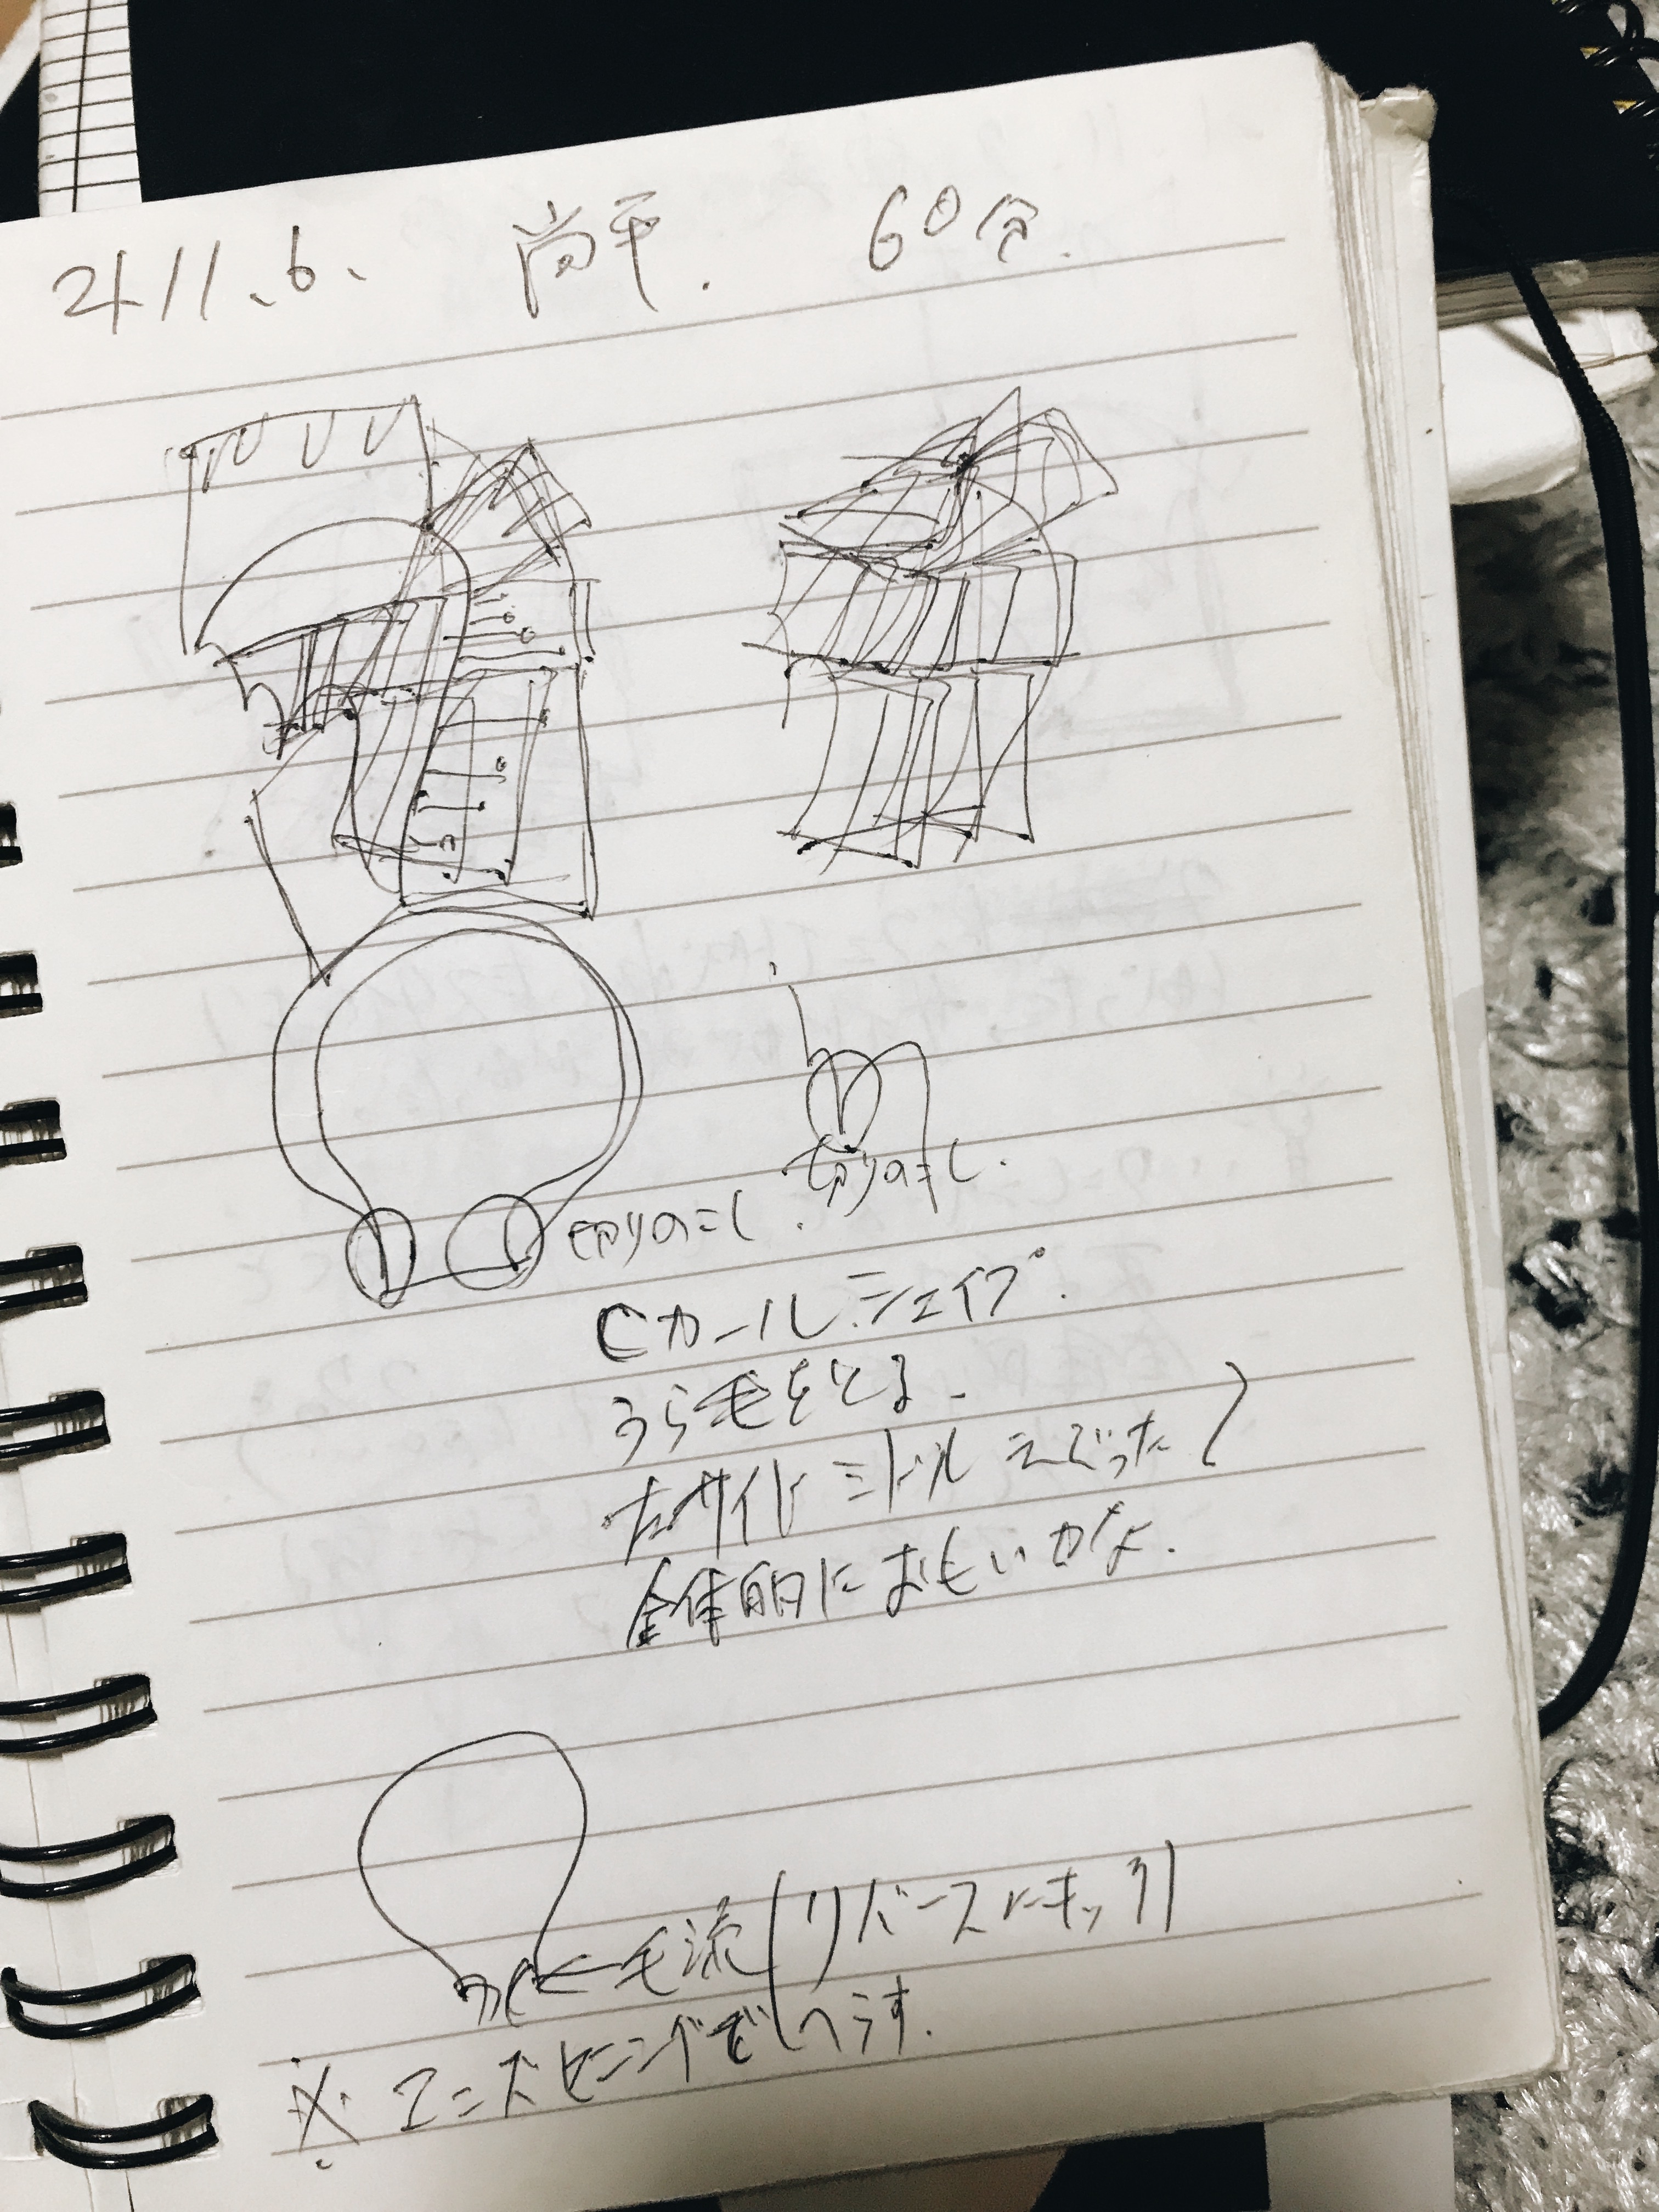 21.11.6. 尚平. 60分.
切りのこし.
切りのこし.
Cカールシェイプ.
うら毛をとる.
左サイド ミドル えぐった
全体的におもいかな.
毛流 リバースにキック
※